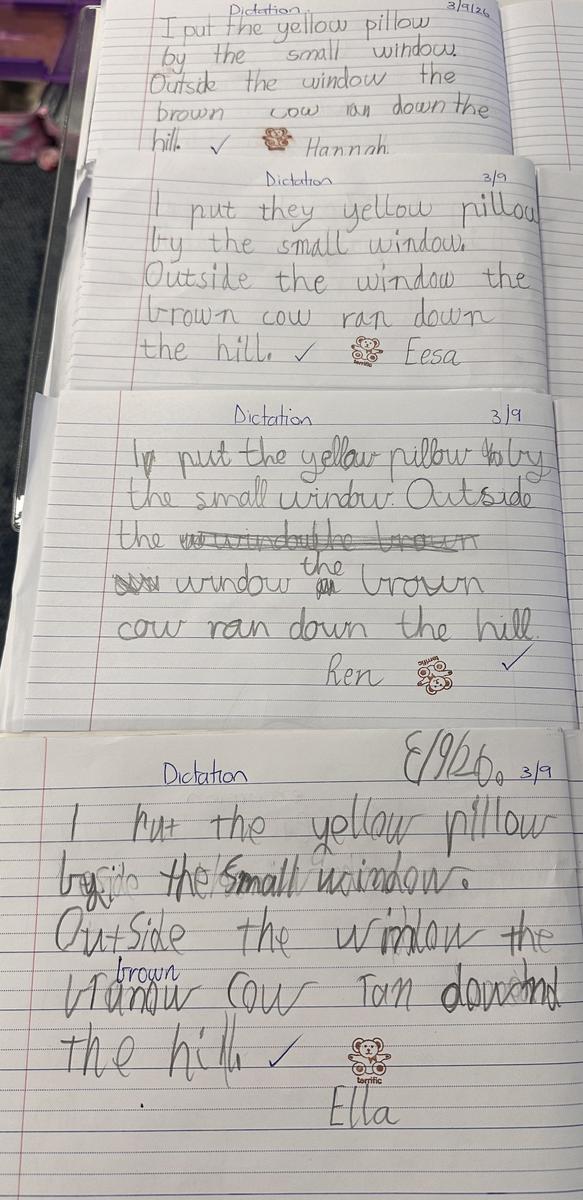 Dictation 3/9/26
I put the yellow pillow
by the small window.
Outside the window the
brown cow ran down the
hill. Hannah
Dictation 3/9
I put they yellow pillow
by the small window.
Outside the window the
brown cow ran down
the hill. Eesa
terrific
Dictation 3/9
I put the yellow pillow by
the small window. Outside
the
the
window brown
cow ran down the hill.
Ren terrific
Dictation 3/9/26. 3/9
I put the yellow pillow
the small window.
Outside the window the
brown
cow ran
the hill.
terrific
Ella